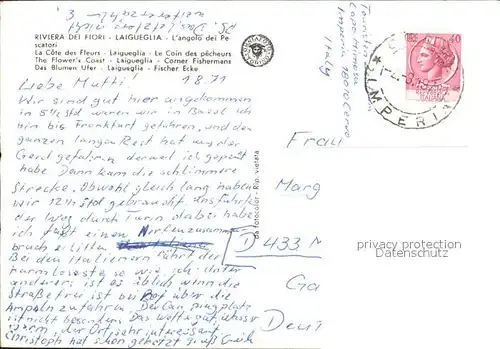 RIVIERA DEI FIORI - LAIGUEGLIA - L'angolo dei Pe
scatori
La Côte des Fleurs - Laigueglia - Le Coin des pêcheurs
The Flower's Coast - Laigueglia - Corner Fishermans
Das Blumen Ufer - Laigueglia - Fischer Ecke
1.8.71
Liebe Mutti!
Wir sind gut hier angekommen
in 5½ Std waren wir in Basel ich
bin bis Frankfurt gefahren, und den
ganzen langen Rest hat nur der
Gerd gefahren derweil ich gepennt
habe Dann kam die schlimmere
Strecke. Obwohl gleich lang haben
wir 12½ Std gebraucht
der Weg durch Turin dabei habe
ich fast einen Nervenzusammen
bruch erlitten
Bei den Italienern fährt der
harmloseste so wie ich. Unter
anderem ist es üblich wenn die
Straße frei ist bei Rot über die
Ampeln zu fahren. Der Campingplatz
ist nicht besonders. Das Wetter gut, Wasser
warm, der Ort sehr interessant.
Christoph hat schon gekotzt
Camping
Capo Mimosa
Imperia 18010 Cervo
Italy
da fotocolor - Rip. vietata
40
IMPERIA
Frau
Marg
D 433
Ga
Deut
PROTECTED WATERMARK
www.ansichtskartenversand.com